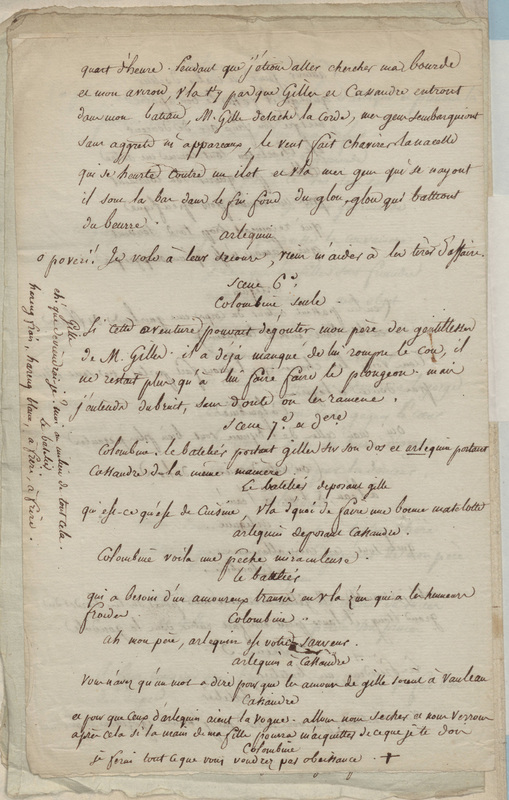 quart d'heure. Pendant que j'étions aller chercher ma bourde
et mon aviron, v'la t'y pas que Gille et Cassandre entront
dans mon bateau, M. Gille detache la corde, mes gens s'embarquiont
sans aggrets ni apparaux, le vent fait chavirer la nacelle
qui se heurte contre un ilot et v'la mes gens qui se nayont
il sont la bas dans le fin fond du glou, glou qui battont
du beurre.
arlequin
o poveri! Je vole à leur secours, viens m'aider à les tirer d'affaire.
Scene 6e
Colombine seule.
Si cette aventure pouvait dégouter mon père des gentillesses
de M. Gille. il a deja manqué de lui rompre le cou, il
ne restait plus qu'à lui faire faire le plongeon. mais
j'entends du bruit, sans doute on les ramene.
Scene 7e et dere
Colombine, le batelier portant gille sur son dos et arlequin portant
Cassandre de la même maniere
Le batelier deposant gille
qu'est-ce qu'est de cuisine, v'la d'quoi de faire une bonne matelotte
arlequin deposant Cassandre.
Colombine voila une peche miraculeuse.
le batelier
qui a besoin d'un amoureux transi en v'la z'un qui a les humeurs
froides.
Colombine.
ah mon père, arlequin est votre sauveur.
arlequin à Cassandre.
Vous n'avez qu'un mot a dire pour que les amours de gille soient à vau l'eau
Cassandre
et pour que ceux d'arlequin aient la vogue. allons nous secher et nous verrons
après cela si la main de ma fille pourra m'aquitter de ce que je te dois
Colombine
je ferai tout ce que vous voudrez pas obeissance. +
Gille
moi au milieu de tout cela.
Le batelier.
hareng frais, hareng blanc, à frire, à frire.